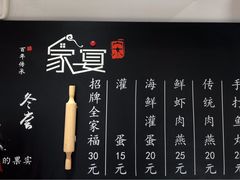 百年传承
家宴
冬尝
的果实
招牌全家福30元
灌蛋15元
海鲜灌蛋20元
鲜虾肉燕25元
传统肉燕20元